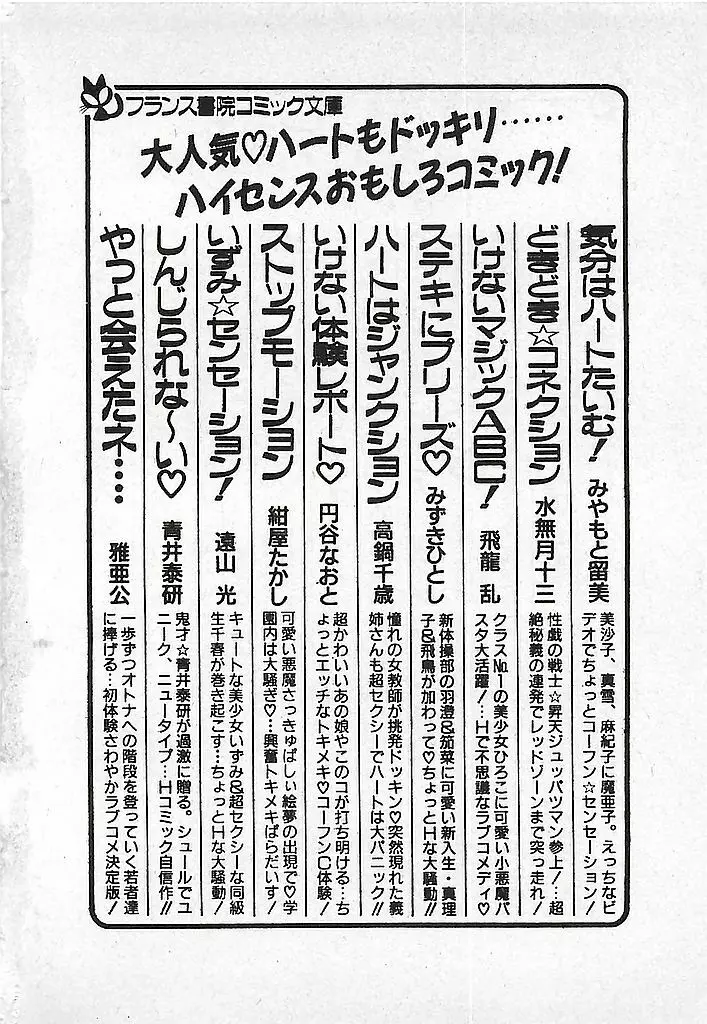 フランス書院コミック文庫
大人気♡ハートもドッキリ……
ハイセンスおもしろコミック！
気分はハートたいむ！ みやもと留美
美沙子、真雪、麻紀子に魔亜子。えっちなビ
デオでちょっとコーフン☆センセーション！
どきどき☆コネクション 水無月十三
性戯の戦士☆昇天ジュッパツマン参上！…超
絶秘義の連発でレッドゾーンまで突っ走れ！
いけないマジックABC！ 飛龍 乱
クラス№1の美少女ひろこに可愛い小悪魔バ
スタ大活躍！…Hで不思議なラブコメディ♡
ステキにプリーズ♡ みずきひとし
新体操部の羽澄&茄菜に可愛い新入生・真理
子&飛鳥が加わって♡ちょっとHな大騒動!!
ハートはジャンクション 高鍋千歳
憧れの女教師が挑発ドッキン♡突然現れた義
姉さんも超セクシーでハートは大パニック!!
いけない体験レポート♡ 円谷なおと
超かわいいあの娘やこのコが打ち明ける…ち
ょっとエッチなトキメキ♡コーフンC体験！
ストップモーション 紺屋たかし
可愛い悪魔さっきゅばしぃ絵夢の出現で♡学
園内は大騒ぎ♡…興奮トキメキぱらだいす！
いずみ☆センセーション！ 遠山 光
キュートな美少女いずみ&超セクシーな同級
生千春が巻き起こす…ちょっとHな大騒動！
しんじられな～い♡ 青井泰研
鬼才☆青井泰研が過激に贈る。シュールでユ
ニーク、ニュータイプ…Hコミック自信作!!
やっと会えたネ… 雅亜公
一歩ずつオトナへの階段を登っていく若者達
に捧げる…初体験さわやかラブコメ決定版！